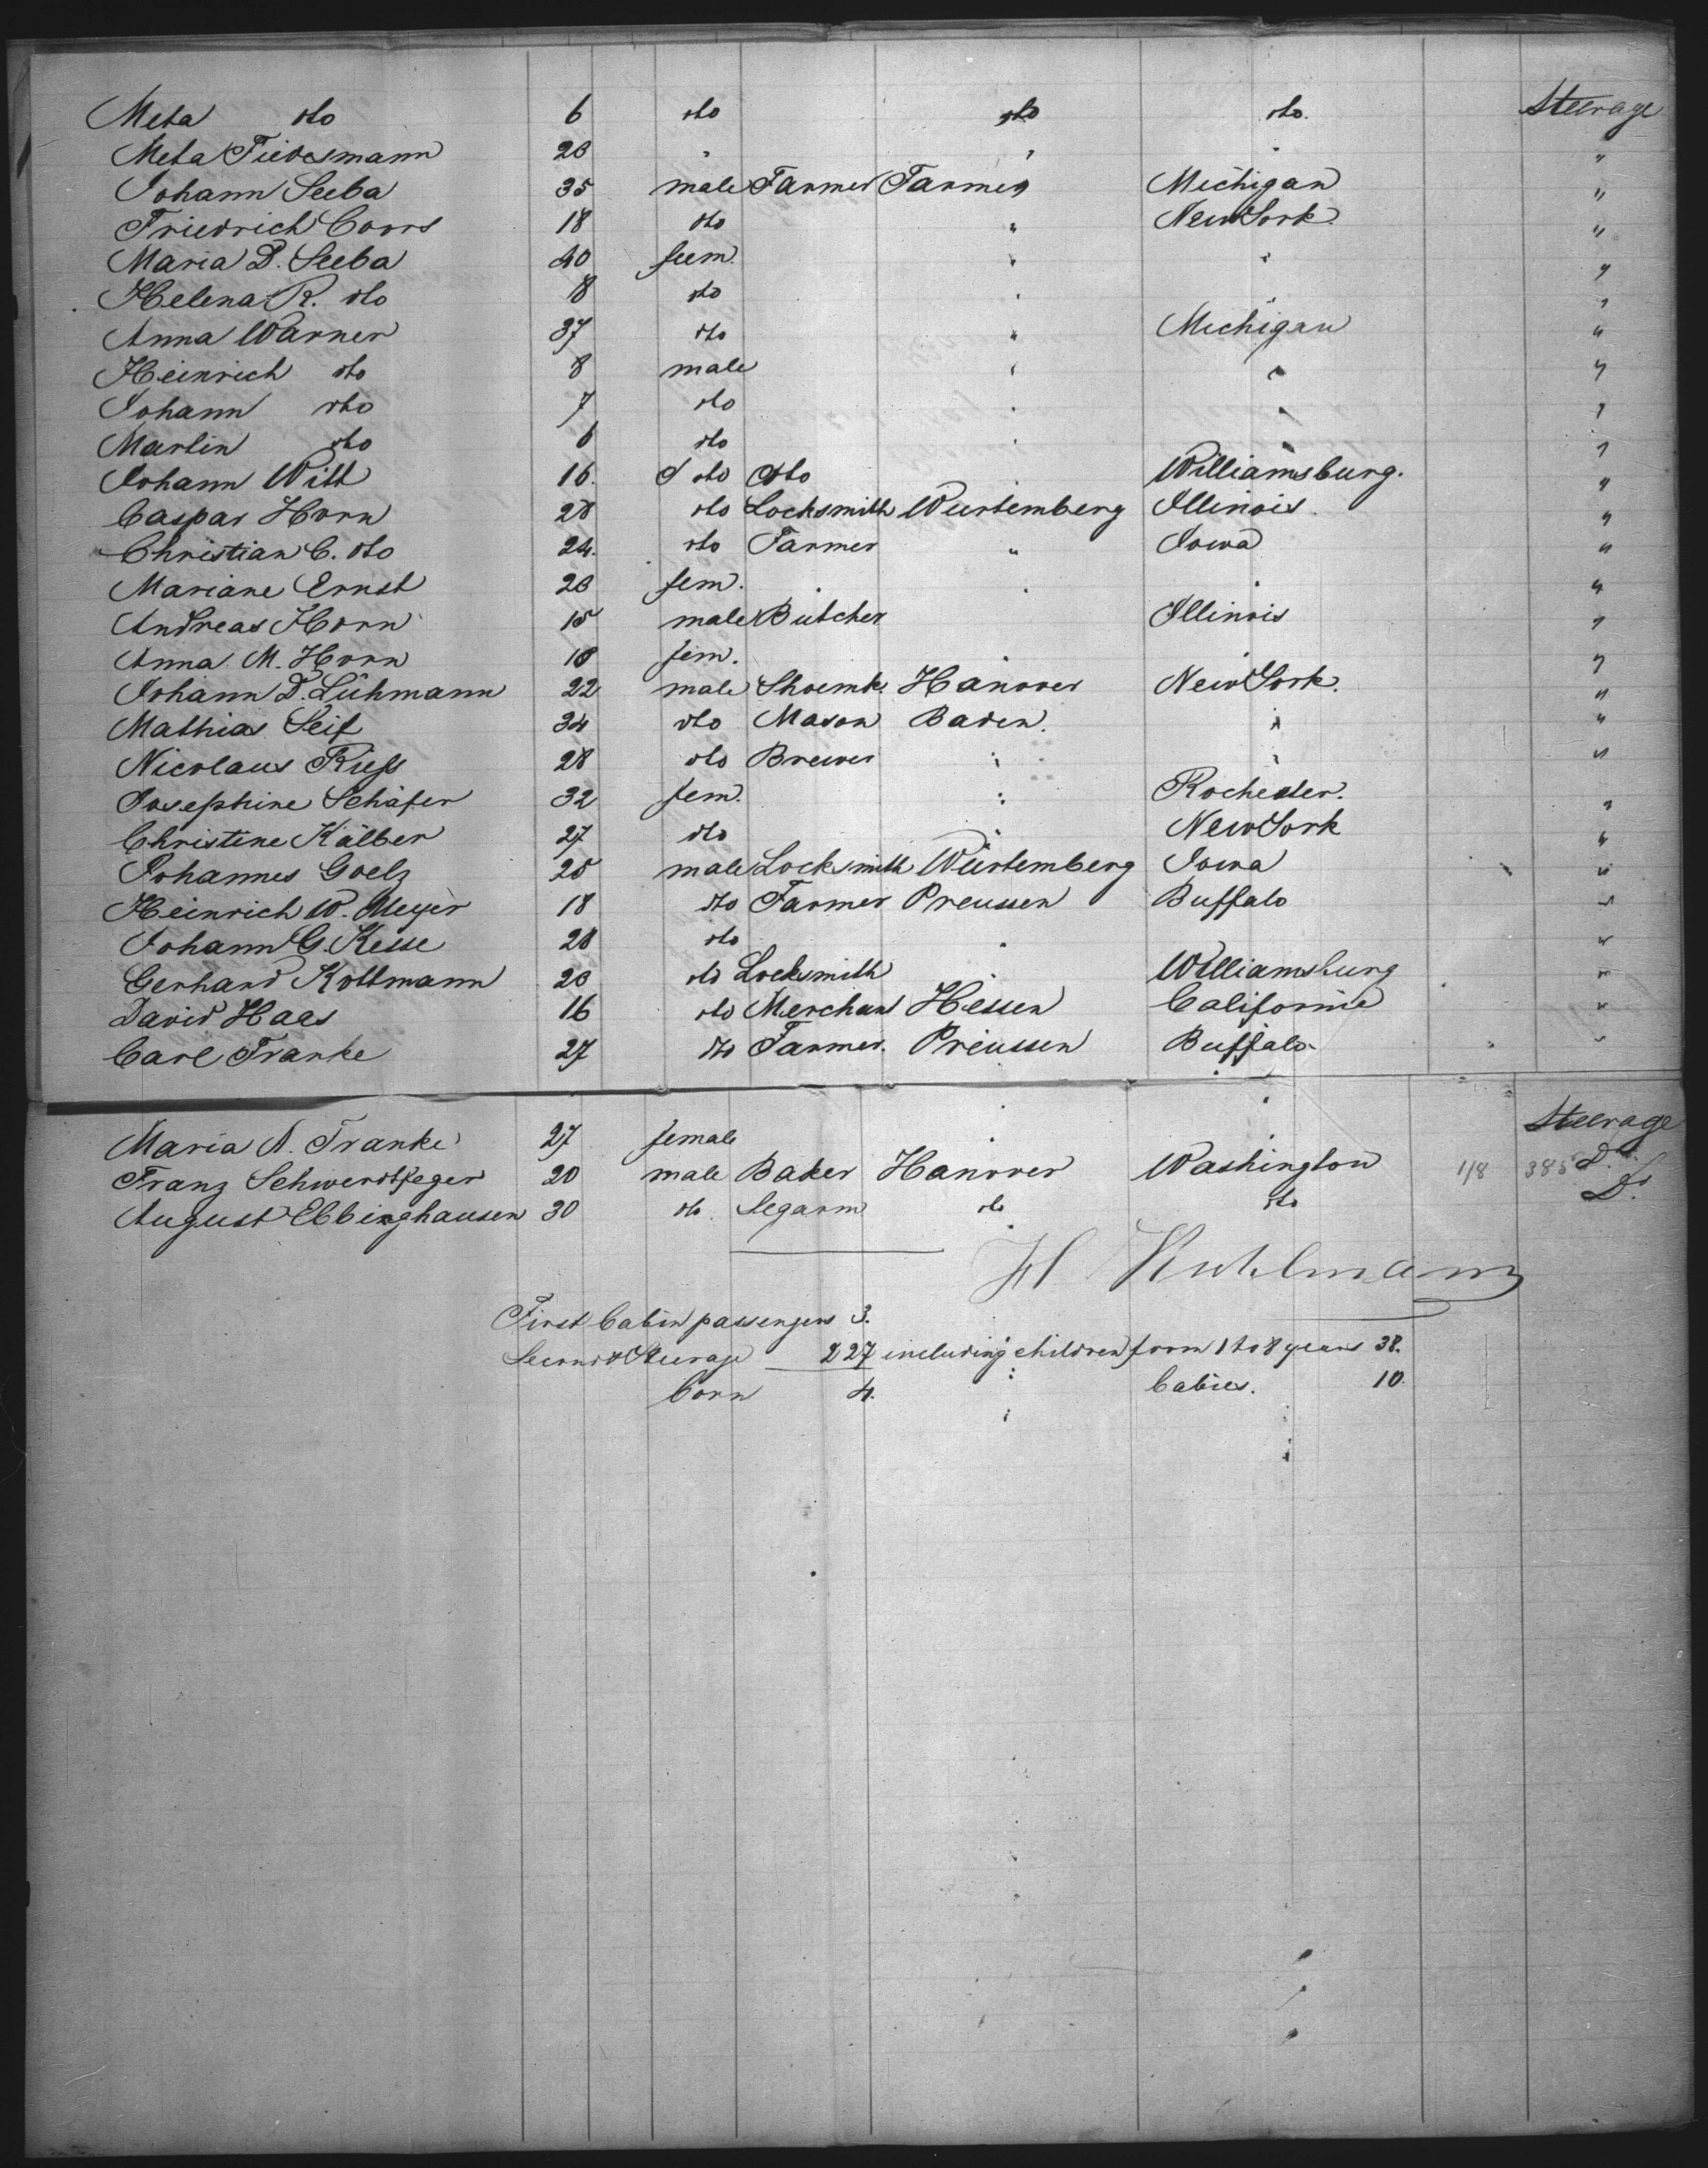 Meta dto 6 dto dto dto. Steerage
Meta Tiedesmann 20 " " " "
Johann Seeba 35 male Farmer Farmer Michigan "
Friedrich Coors 18 dto " New York. "
Maria D. Seeba 40 feem. " " "
Helena R. dto 8 dto " "
Anna Warner 37 dto " Michigan "
Heinrich dto 8 male " " "
Johann dto 7 dto " " "
Martin dto 6 dto " " "
Johann Witt 16. dto dto Williamsburg. "
Caspar Horn 28 dto Locksmith Wurtemberg Illinois. "
Christian C. dto 24. dto Farmer " Iowa "
Mariane Ernst 20 fem. " " " "
Andreas Horn 15 male Butcher Illinois "
Anna M. Horn 18 fem. " " "
Johann D. Lühmann 22 male Shoemk. Hanover New York. "
Mathias Seif 34 dto Mason Baden. " "
Nicolaus Rieß 28 dto Brewer " " "
Josephine Schäfer 32 fem. " Rochester. "
Christine Kälber 27 dto " New York "
Johannes Goelz 25 male Locksmith Würtemberg Iowa "
Heinrich W. Meyer 18 dto Farmer Preussen Buffalo "
Johann G. Kesse 28 dto " "
Gerhard Kottmann 20 dto Locksmith " Williamsburg "
David Haas 16 dto Merchant Hessen Californie "
Carl Franke 27 dto Farmer. Preussen Buffalo "
Maria A. Franke 27 female " " Steerage
Franz Schwerdtfeger 20 male Baker Hanover Washington 118 385 Do
August Ebbinghausen 30 do. Segarm do dto Do.
H Kuhlmann
First Cabin passengers 3.
Second & Steerage 227 including children from 1 to 8 years 38.
born 4. " babies. 10.